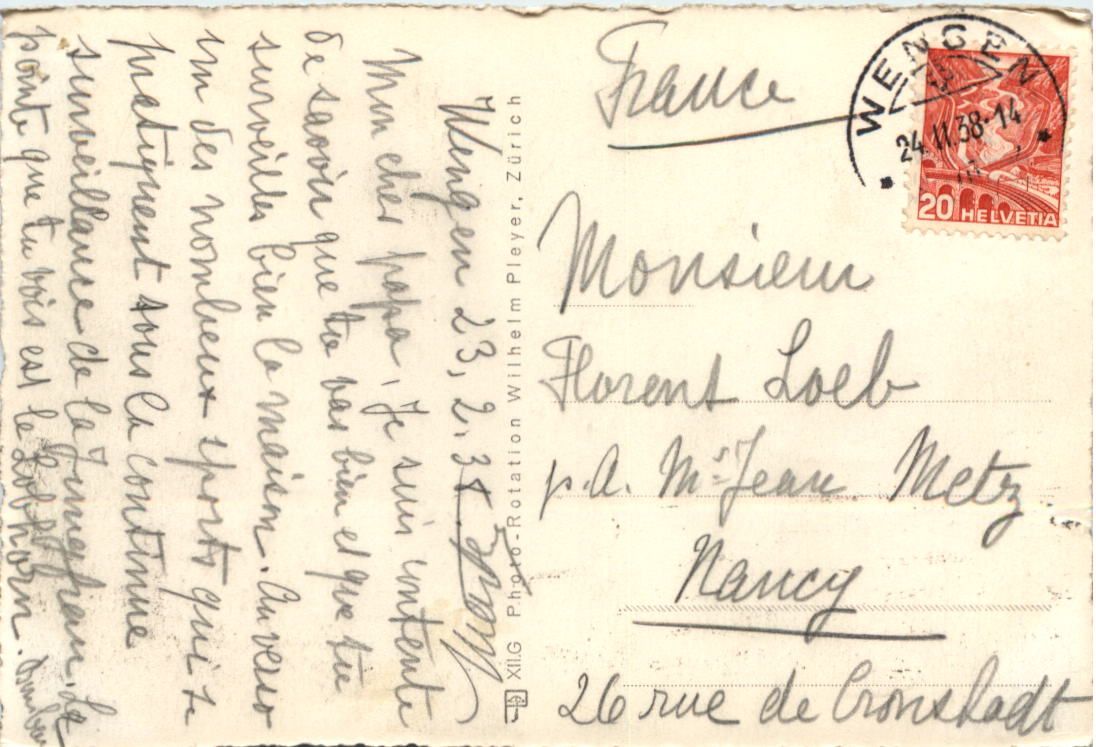 Wengen 23, 2. 38
Mon cher papa, Je suis contente
de savoir que tu vas bien et que tu
surveilles bien la maison. Au verso
un des nombreux sports qui se
pratiquent sous la continue
surveillance de la Jungfrau. La
pointe que tu vois est le Lobhorn.
XII.G Photo-Rotation Wilhelm Pleyer, Zürich
France
WENGEN
24.II.38-14
20 HELVETIA
Monsieur
Florent Loeb
p.a. Mr Jean Metz
Nancy
26 rue de Cronstadt